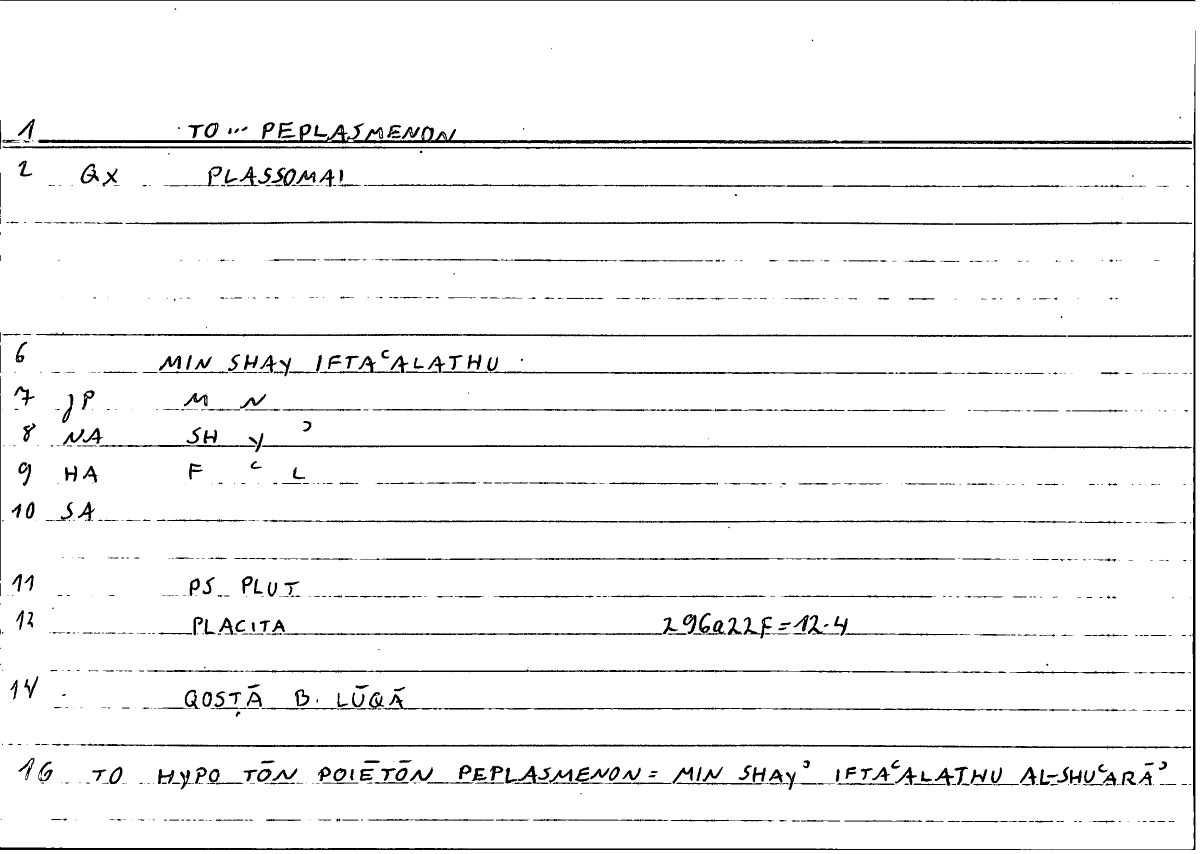 1 TO ... PEPLASMENON
2 QX PLASSOMAI
6 MIN SHAY IFTAᶜALATHU
7 JP M N
8 NA SH Y ᵓ
9 HA F ᶜ L
10 SA
11 PS PLUT
12 PLACITA 296a22F=12.4
14 QOSṬĀ B. LŪQĀ
16 TO HYPO TŌN POIĒTŌN PEPLASMENON = MIN SHAYᵓ IFTAᶜALATHU AL-SHUᶜARĀᵓ